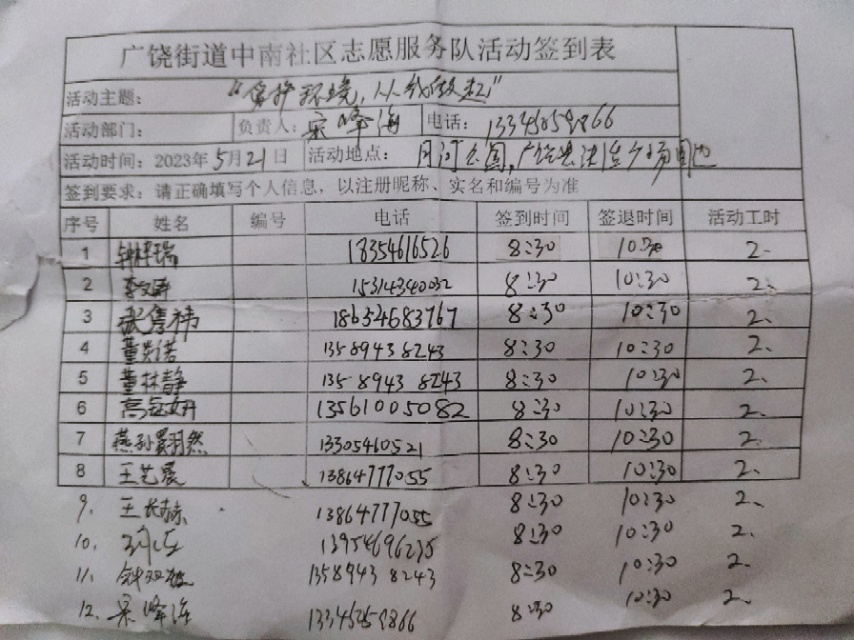 广饶街道中南社区志愿服务队活动签到表
活动主题： “保护环境，从我做起”
活动部门： 负责人：宋峰海 电话：
活动时间：2023年5月21日 活动地点：月河公园，广饶县法治广场周边
签到要求：请正确填写个人信息，以注册昵称、实名和编号为准
序号 姓名 编号 电话 签到时间 签退时间 活动工时
1 18354616526 8:30 10:30 2、
2 15314340032 8:30 10:30 2、
3 18654683767 8:30 10:30 2、
4 13589438243 8:30 10:30 2、
5 董林静 13589438243 8:30 10:30 2、
6 高钰妍 13561005082 8:30 10:30 2、
7 燕孙翾然 13305460521 8:30 10:30 2、
8 王艺宸 13864777055 8:30 10:30 2、
9、 王长赫 13864777055 8:30 10:30 2、
10、 13954696235 8:30 10:30 2、
11、 13589438243 8:30 10:30 2、
12、 宋峰海 8:30 10:30 2、